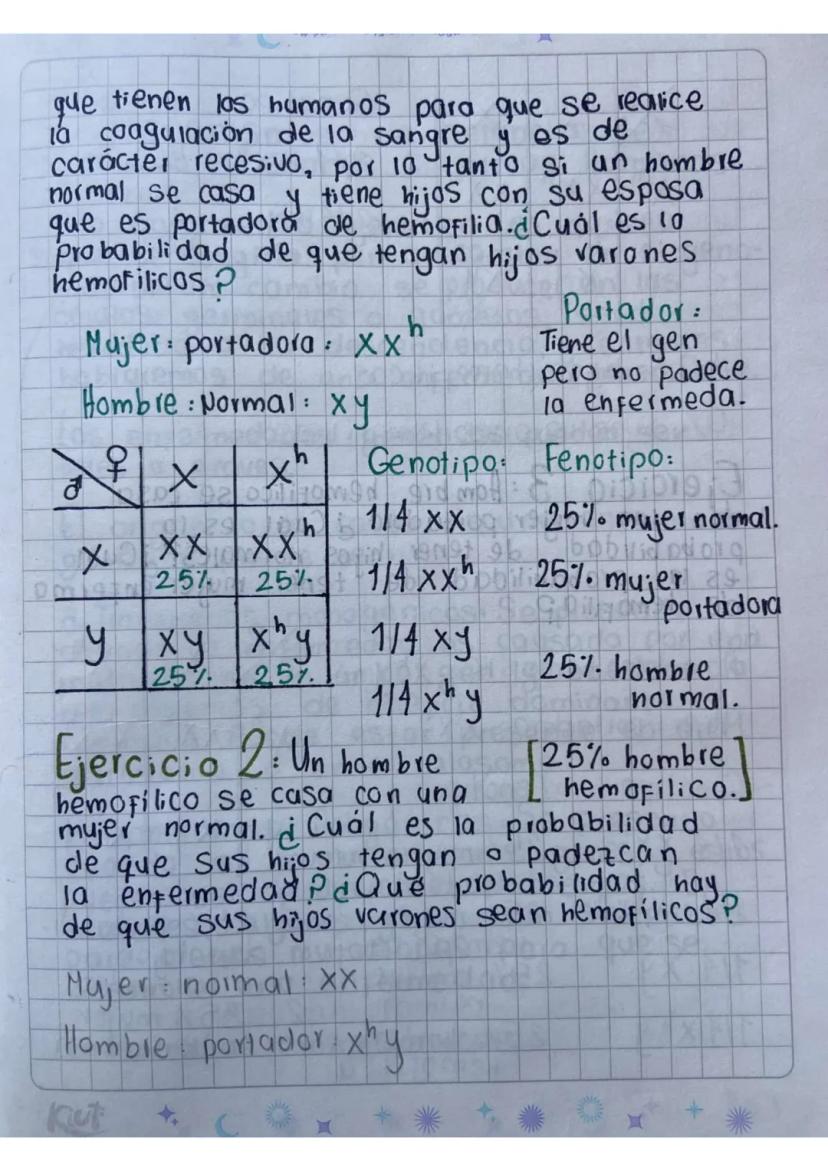 que tienen los humanos para que se realice
la coagulación de la sangre y es de
carácter recesivo, por lo tanto si un hombre
normal se casa y tiene hijos con su esposa
que es portadora de hemofilia. ¿Cuál es la
probabilidad de que tengan hijos varones
hemofílicos?
Mujer: portadora: XX^h
Hombre: Normal: xy
Portador:
Tiene el gen
pero no padece
la enfermeda.
♂ ♀ X X^h
X XX XX^h
25% 25%
y xy x^h y
25% 25%
Genotipo:
1/4 xx
1/4 xx^h
1/4 xy
1/4 x^h y
Fenotipo:
25% mujer normal.
25% mujer
portadora
25% hombre
normal.
[25% hombre
hemofílico.]
Ejercicio 2: Un hombre
hemofílico se casa con una
mujer normal. ¿Cuál es la probabilidad
de que sus hijos tengan o padezcan
la enfermedad? ¿Qué probabilidad hay
de que sus hijos varones sean hemofílicos?
Mujer: normal: XX
Hombre: portador: x^h y